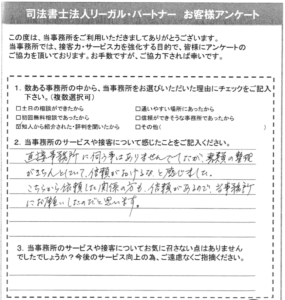 司法書士法人リーガル・パートナー お客様アンケート
この度は、当事務所をご利用いただきましてありがとうございます。
当事務所では、接客力・サービス力を強化する目的で、皆様にアンケートの
ご協力を頂いております。お手数ですが、ご協力下されば幸いです。
1. 数ある事務所の中から、当事務所をお選びいただいた理由にチェックをご記入
下さい。(複数選択可)
□土日の相談ができたから
□通いやすい場所にあったから
□初回無料相談であったから
□信頼ができそうな事務所であったから
☑知人から紹介された・評判を聞いたから
□その他( )
2. 当事務所のサービスや接客について感じたことをご記入ください。
直接事務所に伺う事はありませんでしたが、書類の整理
がきちんとしていて、信頼がおけるな、と感じました。
こちらから依頼した関係の方も、信頼があるので、当事務所
にお願いしたのだと思います。
3. 当事務所のサービスや接客についてお気に召さない点はありません
でしたでしょうか?今後のサービス向上の為、ご遠慮なくご指摘ください。